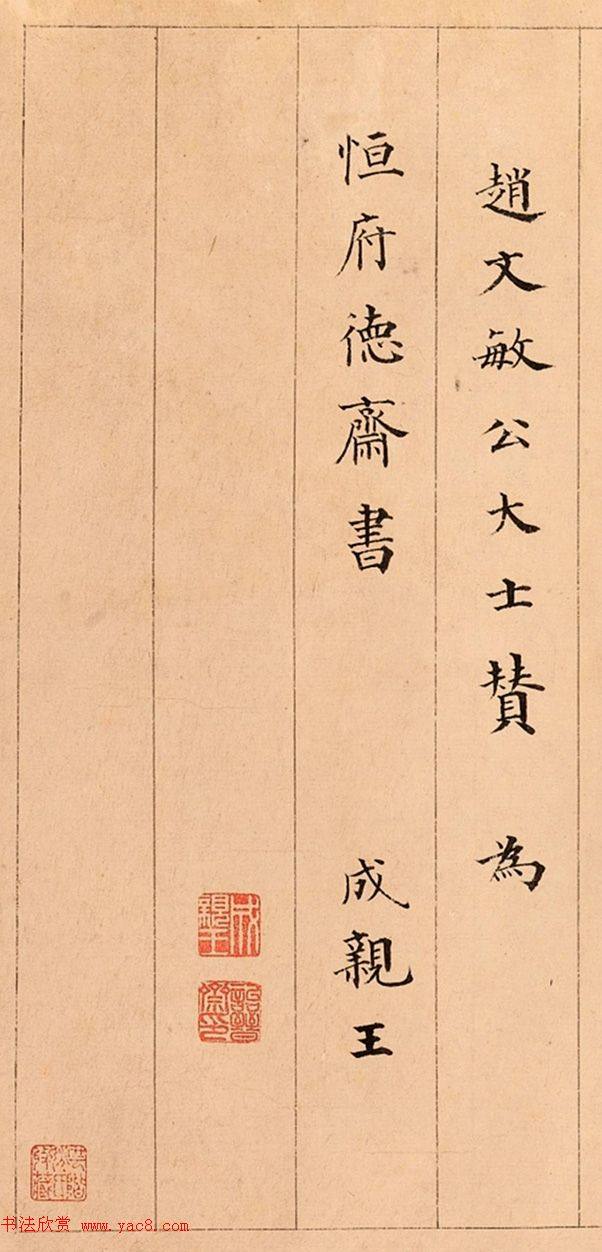 趙文敏公大士賛 為
恒府德齋書 成親王
成親王
詒晉齋印
书法欣赏 www.yac8.com